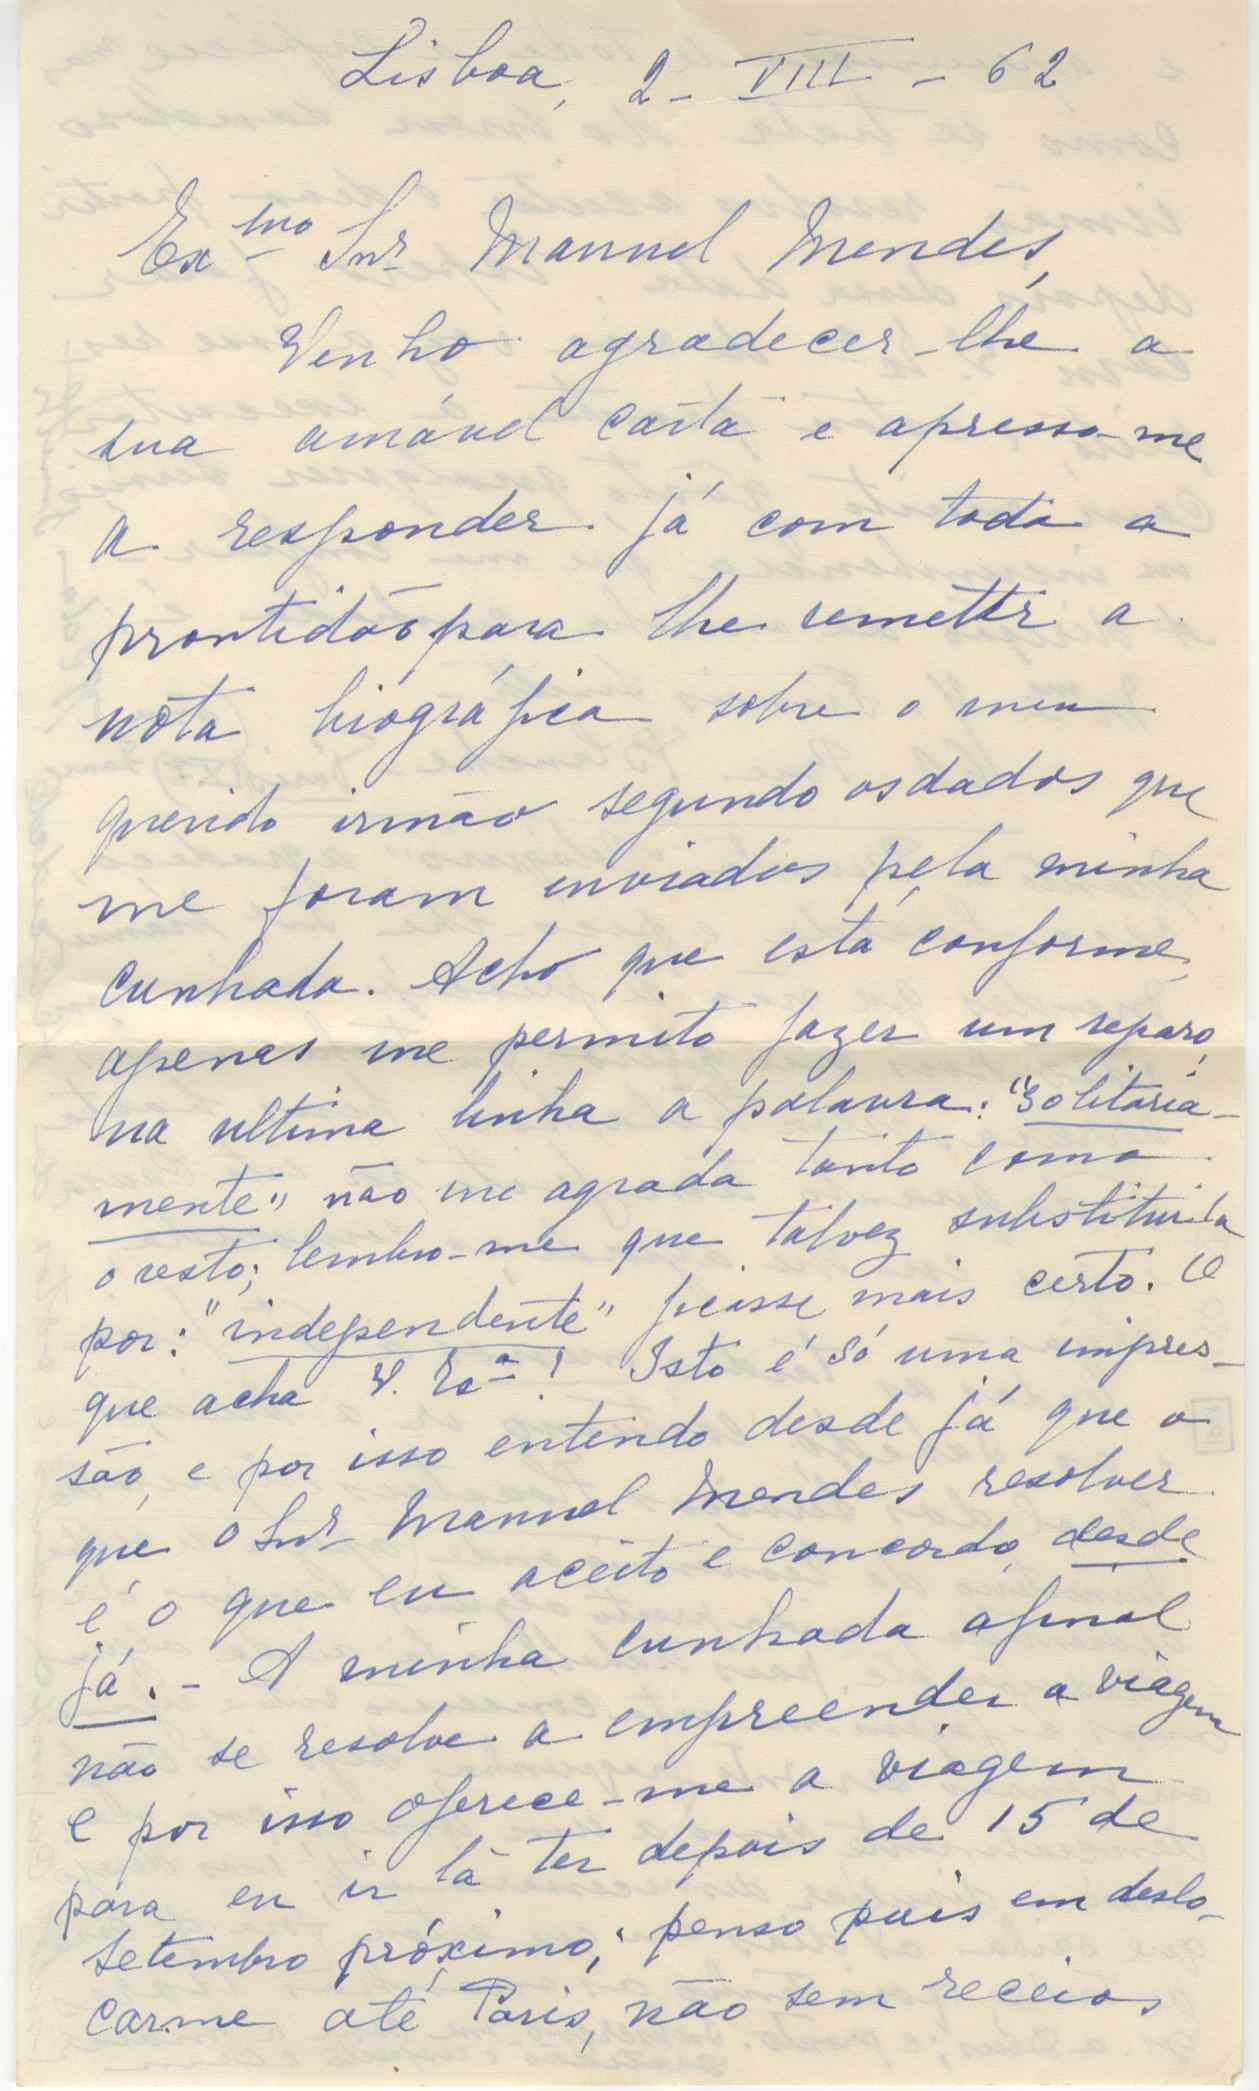 Lisboa, 2 - VIII - 62
Exmo Snr Manuel Mendes,
Venho agradecer-lhe a
sua amável carta e apresso-me
a responder já com toda a
prontidão para lhe remeter a
nota biográfica sobre o meu
querido irmão segundo os dados que
me foram enviados pela minha
cunhada. Acho que está conforme,
apenas me permito fazer um reparo,
na ultima linha a palavra: "solitária-
mente" não me agrada tanto como
o resto; lembro-me que talvez substitui-la
por: "independente" ficasse mais certo. O
que acha V. Exª? Isto é só uma impres-
são, e por isso entendo desde já que o
que o Snr Manuel Mendes resolver
é o que eu aceito e concordo, desde
já. - A minha cunhada afinal
não se resolve a empreender a viagem
e por isso oferece-me a viagem
para eu ir lá ter depois de 15 de
Setembro próximo; penso pois em deslo-
carme até Paris, não sem receios